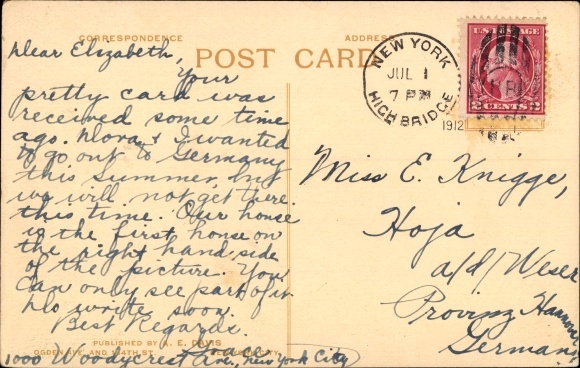 CORRESPONDENCE
ADDRESS
POST CARD
Dear Elizabeth,
Your
pretty card was
received some time
ago. Nora & I wanted
to go out to Germany
this summer, but
we will not get there
this time. Our house
is the first house on
the right hand side
of the picture. You
can only see part of it
Pls write soon.
Best Regards.
PUBLISHED BY A. E. DAVIS
OGDEN AVE. AND 164TH ST.
1000 Woodycrest Ave., New York City
NEW YORK
JUL 1
7 PM
1912
HIGH BRIDGE
U.S. POSTAGE
2 CENTS 2
Miss E. Knigge,
Hoja
a/d/ Weser
Provinz Hannover
Germany